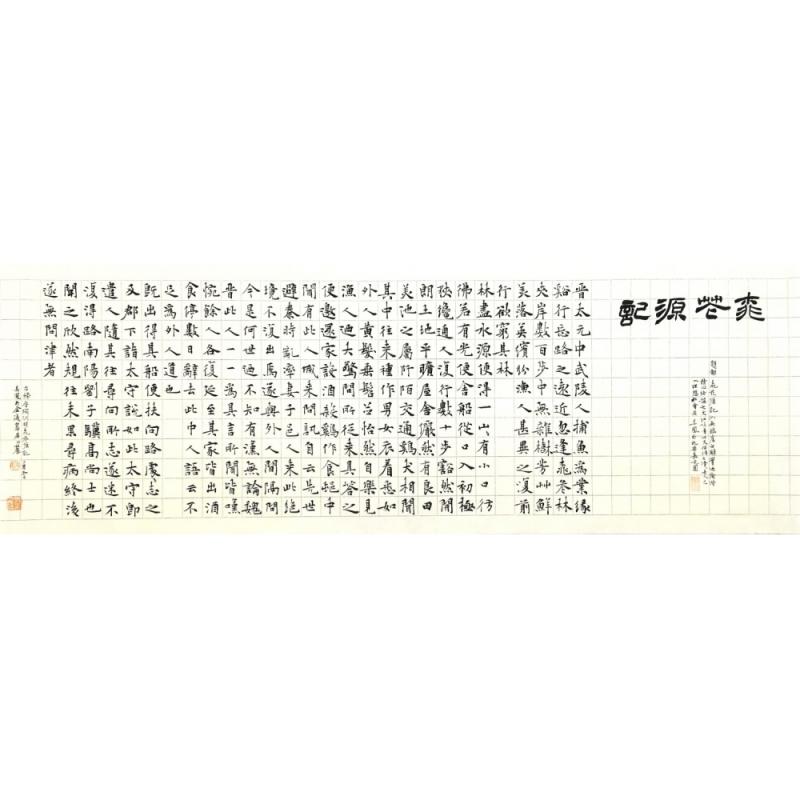 桃花源記
晉太元中武陵人捕魚為業緣
谿行忘路之遠近忽逢桃花林
夾岸數百步中無雜樹芳艸鮮
美落英繽紛漁人甚異之復前
行欲窮其林
林盡水源便得一山有小口彷
彿若有光便舍船從口入初極
狹纔通人復行數十步豁然開
朗土地平曠屋舍儼然有良田
美池之屬阡陌交通雞犬相聞
其中往來種作男女衣着悉如
外人黃髮垂髫並怡然自樂見
漁人迺大驚問所從來具答之
便邀還家設酒殺雞作食邨中
聞有此人咸來問訊自云先世
避秦時亂率妻子邑人來此絕
境不復出焉遂與外人間隔問
今是何世迺不知有漢無論魏
晉此人一一為具言所聞皆嘆
惋餘人各復延至其家皆出酒
食停數日辭去此中人語云不
足為外人道也
既出得其船便扶向路處〻志之
及郡下詣太守說如此太守即
遣人隨其往尋向所志遂迷不
復得路南陽劉子驥高尚士也
聞之欣然規往未果尋病終後
遂無問津者